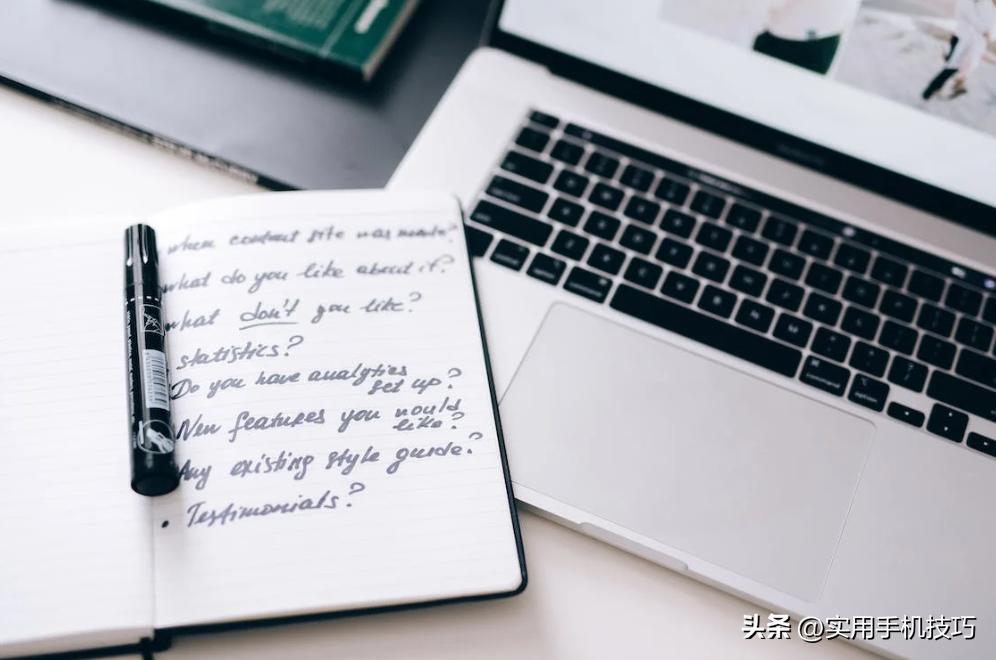 when content site was made?
what do you like about it?
what don't you like?
statistics?
Do you have analytics
set up?
New features you would
like?
Any existing style guide?
• Testimonials?
command
option
头条 @实用手机技巧